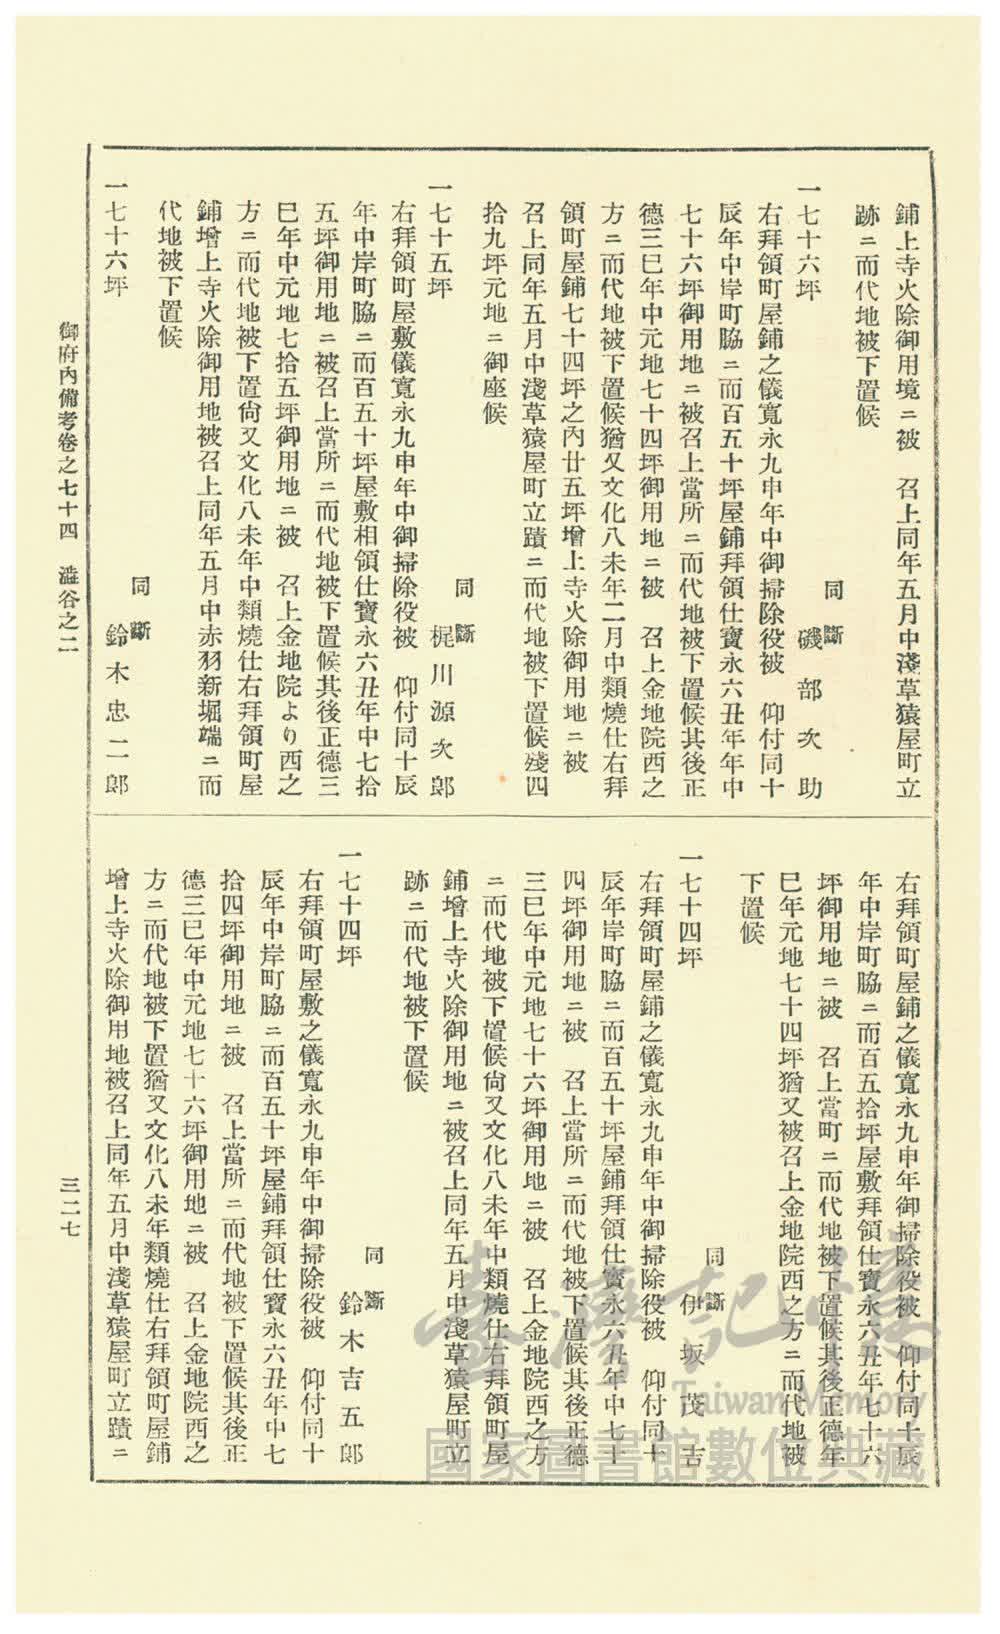 鋪上寺火除御用境ニ被　召上同年五月中淺草猿屋町立
跡ニ而代地被下置候
一七十六坪
同斷
磯部次助
右拜領町屋鋪之儀寬永九申年中御掃除役被　仰付同十
辰年中岸町脇ニ而百五十坪屋鋪拜領仕寶永六丑年年中
七十六坪御用地ニ被召上當所ニ而代地被下置候其後正
德三巳年中元地七十四坪御用地ニ被　召上金地院西之
方ニ而代地被下置候猶又文化八未年二月中類燒仕右拜
領町屋鋪七十四坪之內廿五坪增上寺火除御用地ニ被
召上同年五月中淺草猿屋町立蹟ニ而代地被下置候殘四
拾九坪元地ニ御座候
一七十五坪
同斷
梶川源次郞
右拜領町屋敷儀寬永九申年中御掃除役被　仰付同十辰
年中岸町脇ニ而百五十坪屋敷相領仕寶永六丑年中七拾
五坪御用地ニ被召上當所ニ而代地被下置候其後正德三
巳年中元地七拾五坪御用地ニ被　召上金地院より西之
方ニ而代地被下置尙又文化八未年中類燒仕右拜領町屋
鋪增上寺火除御用地被召上同年五月中赤羽新堀端ニ而
代地被下置候
一七十六坪
同斷
鈴木忠二郞
右拜領町屋鋪之儀寬永九申年御掃除役被　仰付同十辰
年中岸町脇ニ而百五拾坪屋敷拜領仕寶永六丑年七十六
坪御用地ニ被　召上當町ニ而代地被下置候其後正德年
巳年元地七十四坪猶又被召上金地院西之方ニ而代地被
下置候
一七十四坪
同斷
伊坂茂吉
右拜領町屋鋪之儀寬永九申年中御掃除役被　仰付同十
辰年岸町脇ニ而百五十坪屋鋪拜領仕寶永六丑年中七十
四坪御用地ニ被　召上當所ニ而代地被下置候其後正德
三巳年中元地七十六坪御用地ニ被　召上金地院西之方
ニ而代地被下置候尙又文化八未年中類燒仕右拜領町屋
鋪增上寺火除御用地ニ被召上同年五月中淺草猿屋町立
跡ニ而代地被下置候
一七十四坪
同斷
鈴木吉五郞
右拜領町屋敷之儀寬永九申年中御掃除役被　仰付同十
辰年中岸町脇ニ而百五十坪屋鋪拜領仕寶永六丑年中七
拾四坪御用地ニ被　召上當所ニ而代地被下置候其後正
德三巳年中元地七十六坪御用地ニ被　召上金地院西之
方ニ而代地被下置猶又文化八未年類燒仕右拜領町屋鋪
增上寺火除御用地被召上同年五月中淺草猿屋町立蹟ニ
御府內備考卷之七十四　澁谷之二
三二七
臺灣記憶
Taiwan Memory
國家圖書館數位典藏